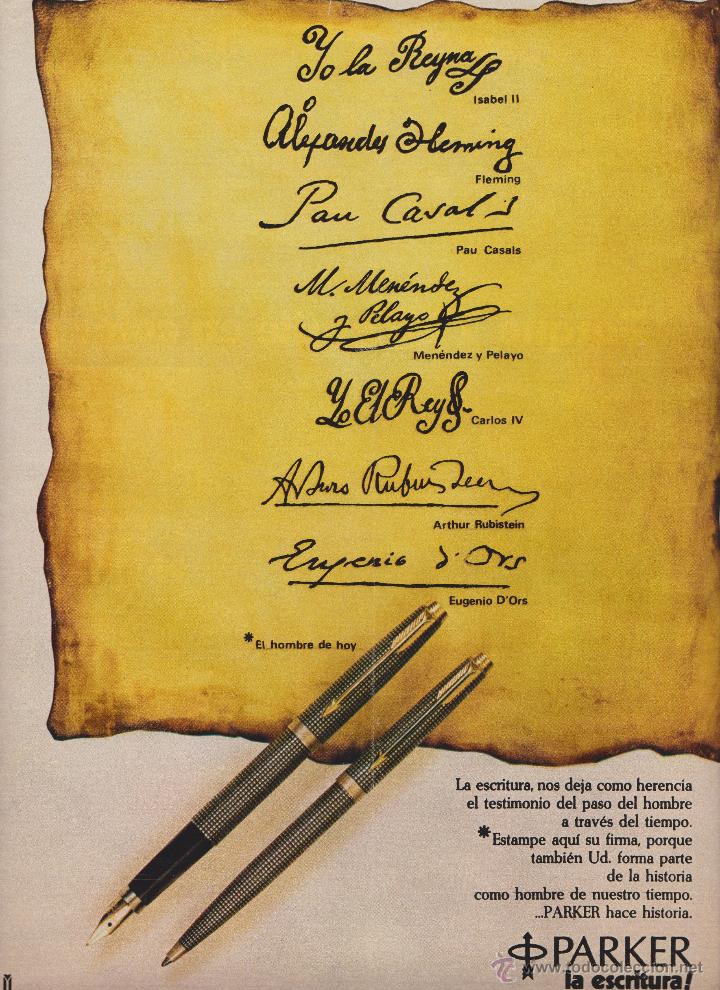 Yo la Reyna
Isabel II
Alexander Fleming
Fleming
Pau Casals
Pau Casals
M. Menéndez
y Pelayo
Menéndez y Pelayo
Yo El Rey
Carlos IV
Arturo Rubinstein
Arthur Rubistein
Eugenio d'Ors
Eugenio D'Ors
*El hombre de hoy
La escritura, nos deja como herencia
el testimonio del paso del hombre
a través del tiempo.
*Estampe aquí su firma, porque
también Ud. forma parte
de la historia
como hombre de nuestro tiempo.
...PARKER hace historia.
PARKER
www.todocoleccion.net
la escritura!